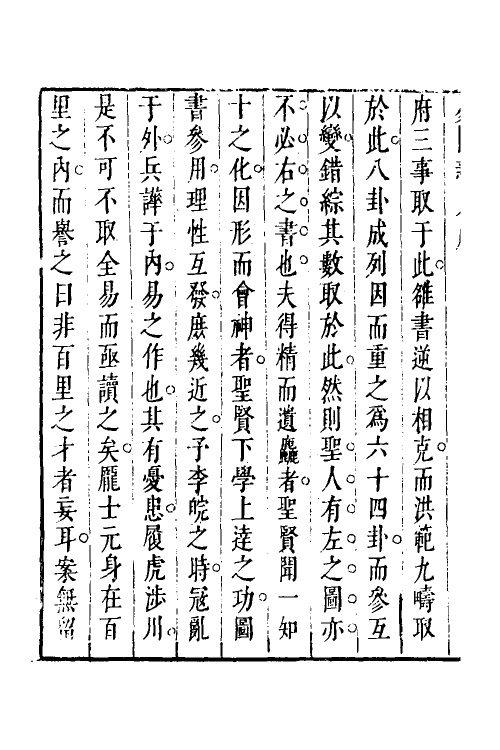 府三事取于此雒書逆以相克而洪範九疇取
於此八卦成列因而重之爲六十四卦而參互
以變錯綜其數取於此然則聖人有左之圖亦
不必右之書也夫得精而遺麤者聖賢聞一知
十之化因形而會神者聖賢下學上達之功圖
書參用理性互發庶幾近之予李皖之時冠亂
于外兵譁于内易之作也其有憂患履虎涉川
是不可不取全易而亟讀之矣龐士元身在百
里之内而譽之曰非百里之才者妄耳案無留